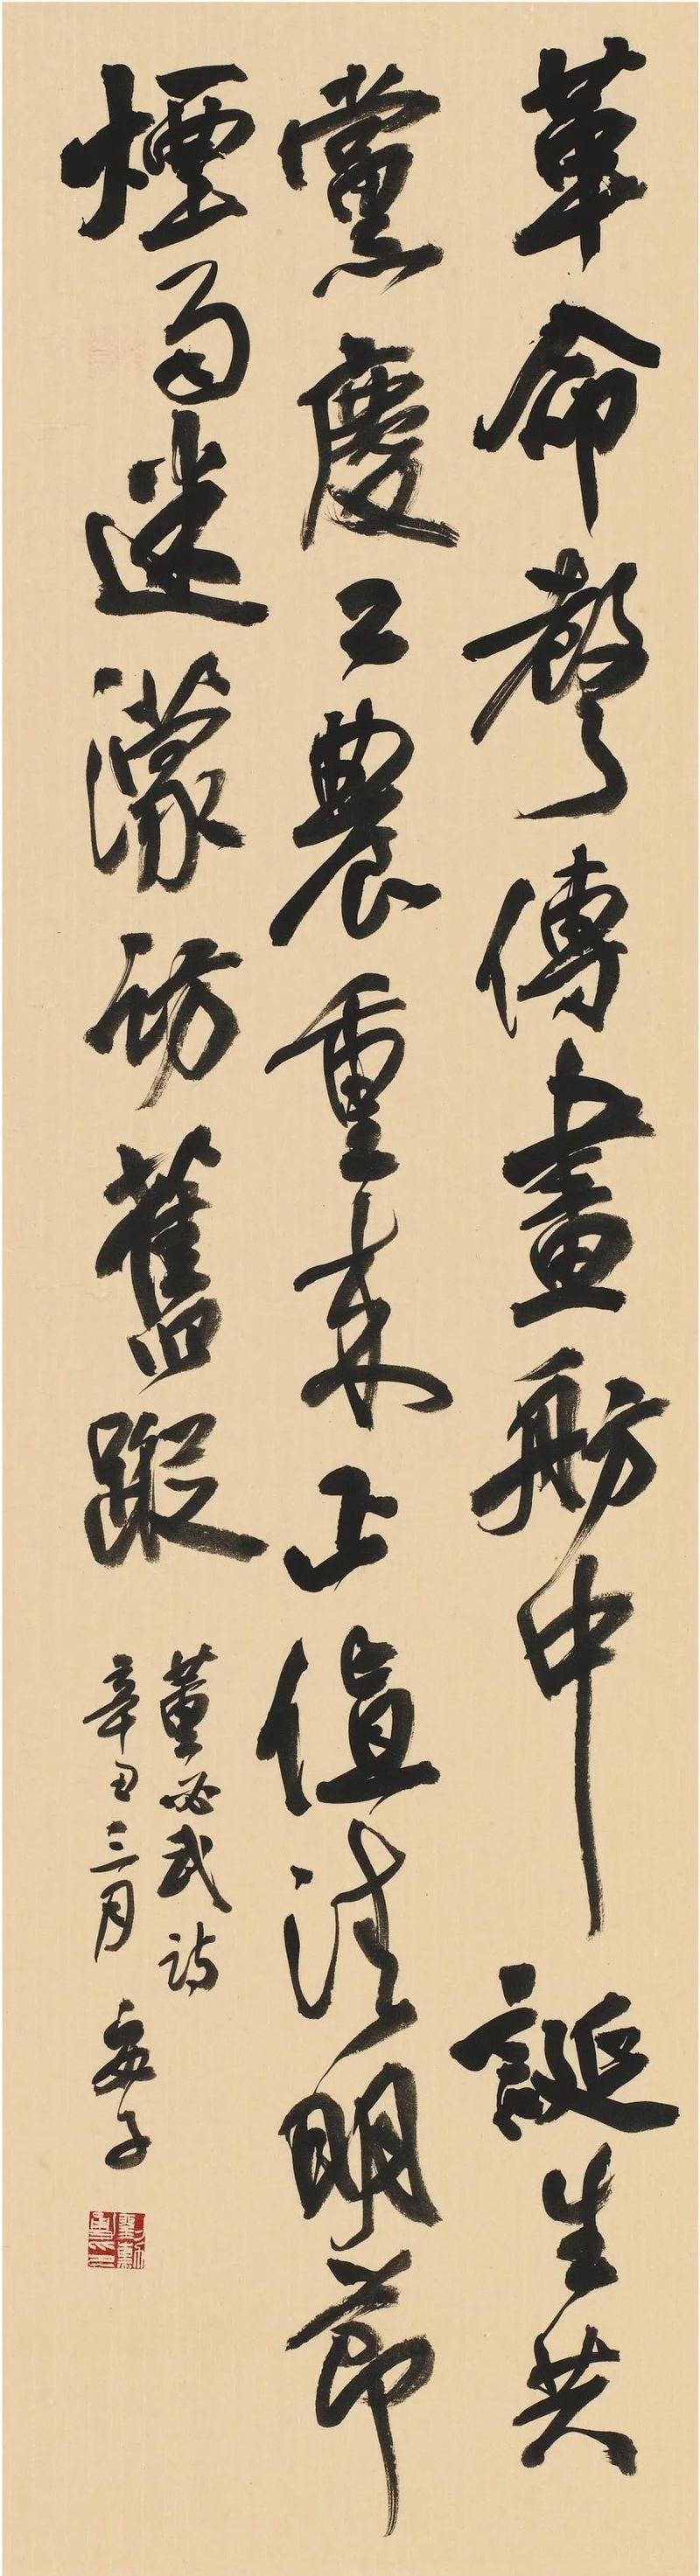 革命聲傳畫舫中誕生共
黨慶工農重来正值清明節
煙雨迷濛訪舊蹤
董必武詩
辛丑三月